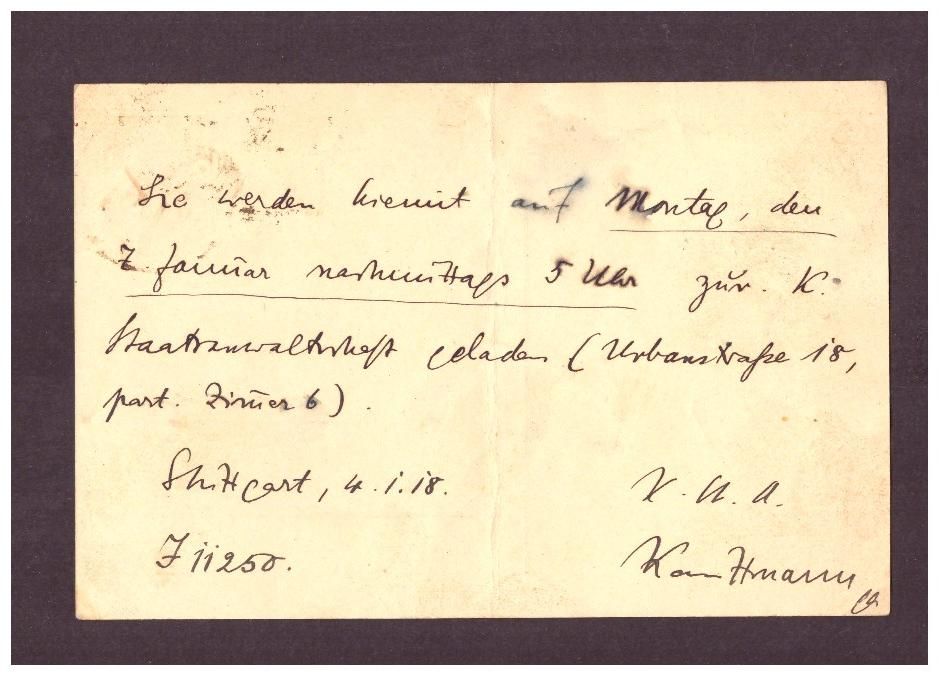 Sie werden hiemit auf Montag, den
7 Januar nachmittags 5 Uhr zur K.
Staatsanwaltschaft geladen (Urbanstraße 18,
part. Zim̄er 6).
Stuttgart, 4.1.18.
K. U. A.
J 11250.
Kauffmann